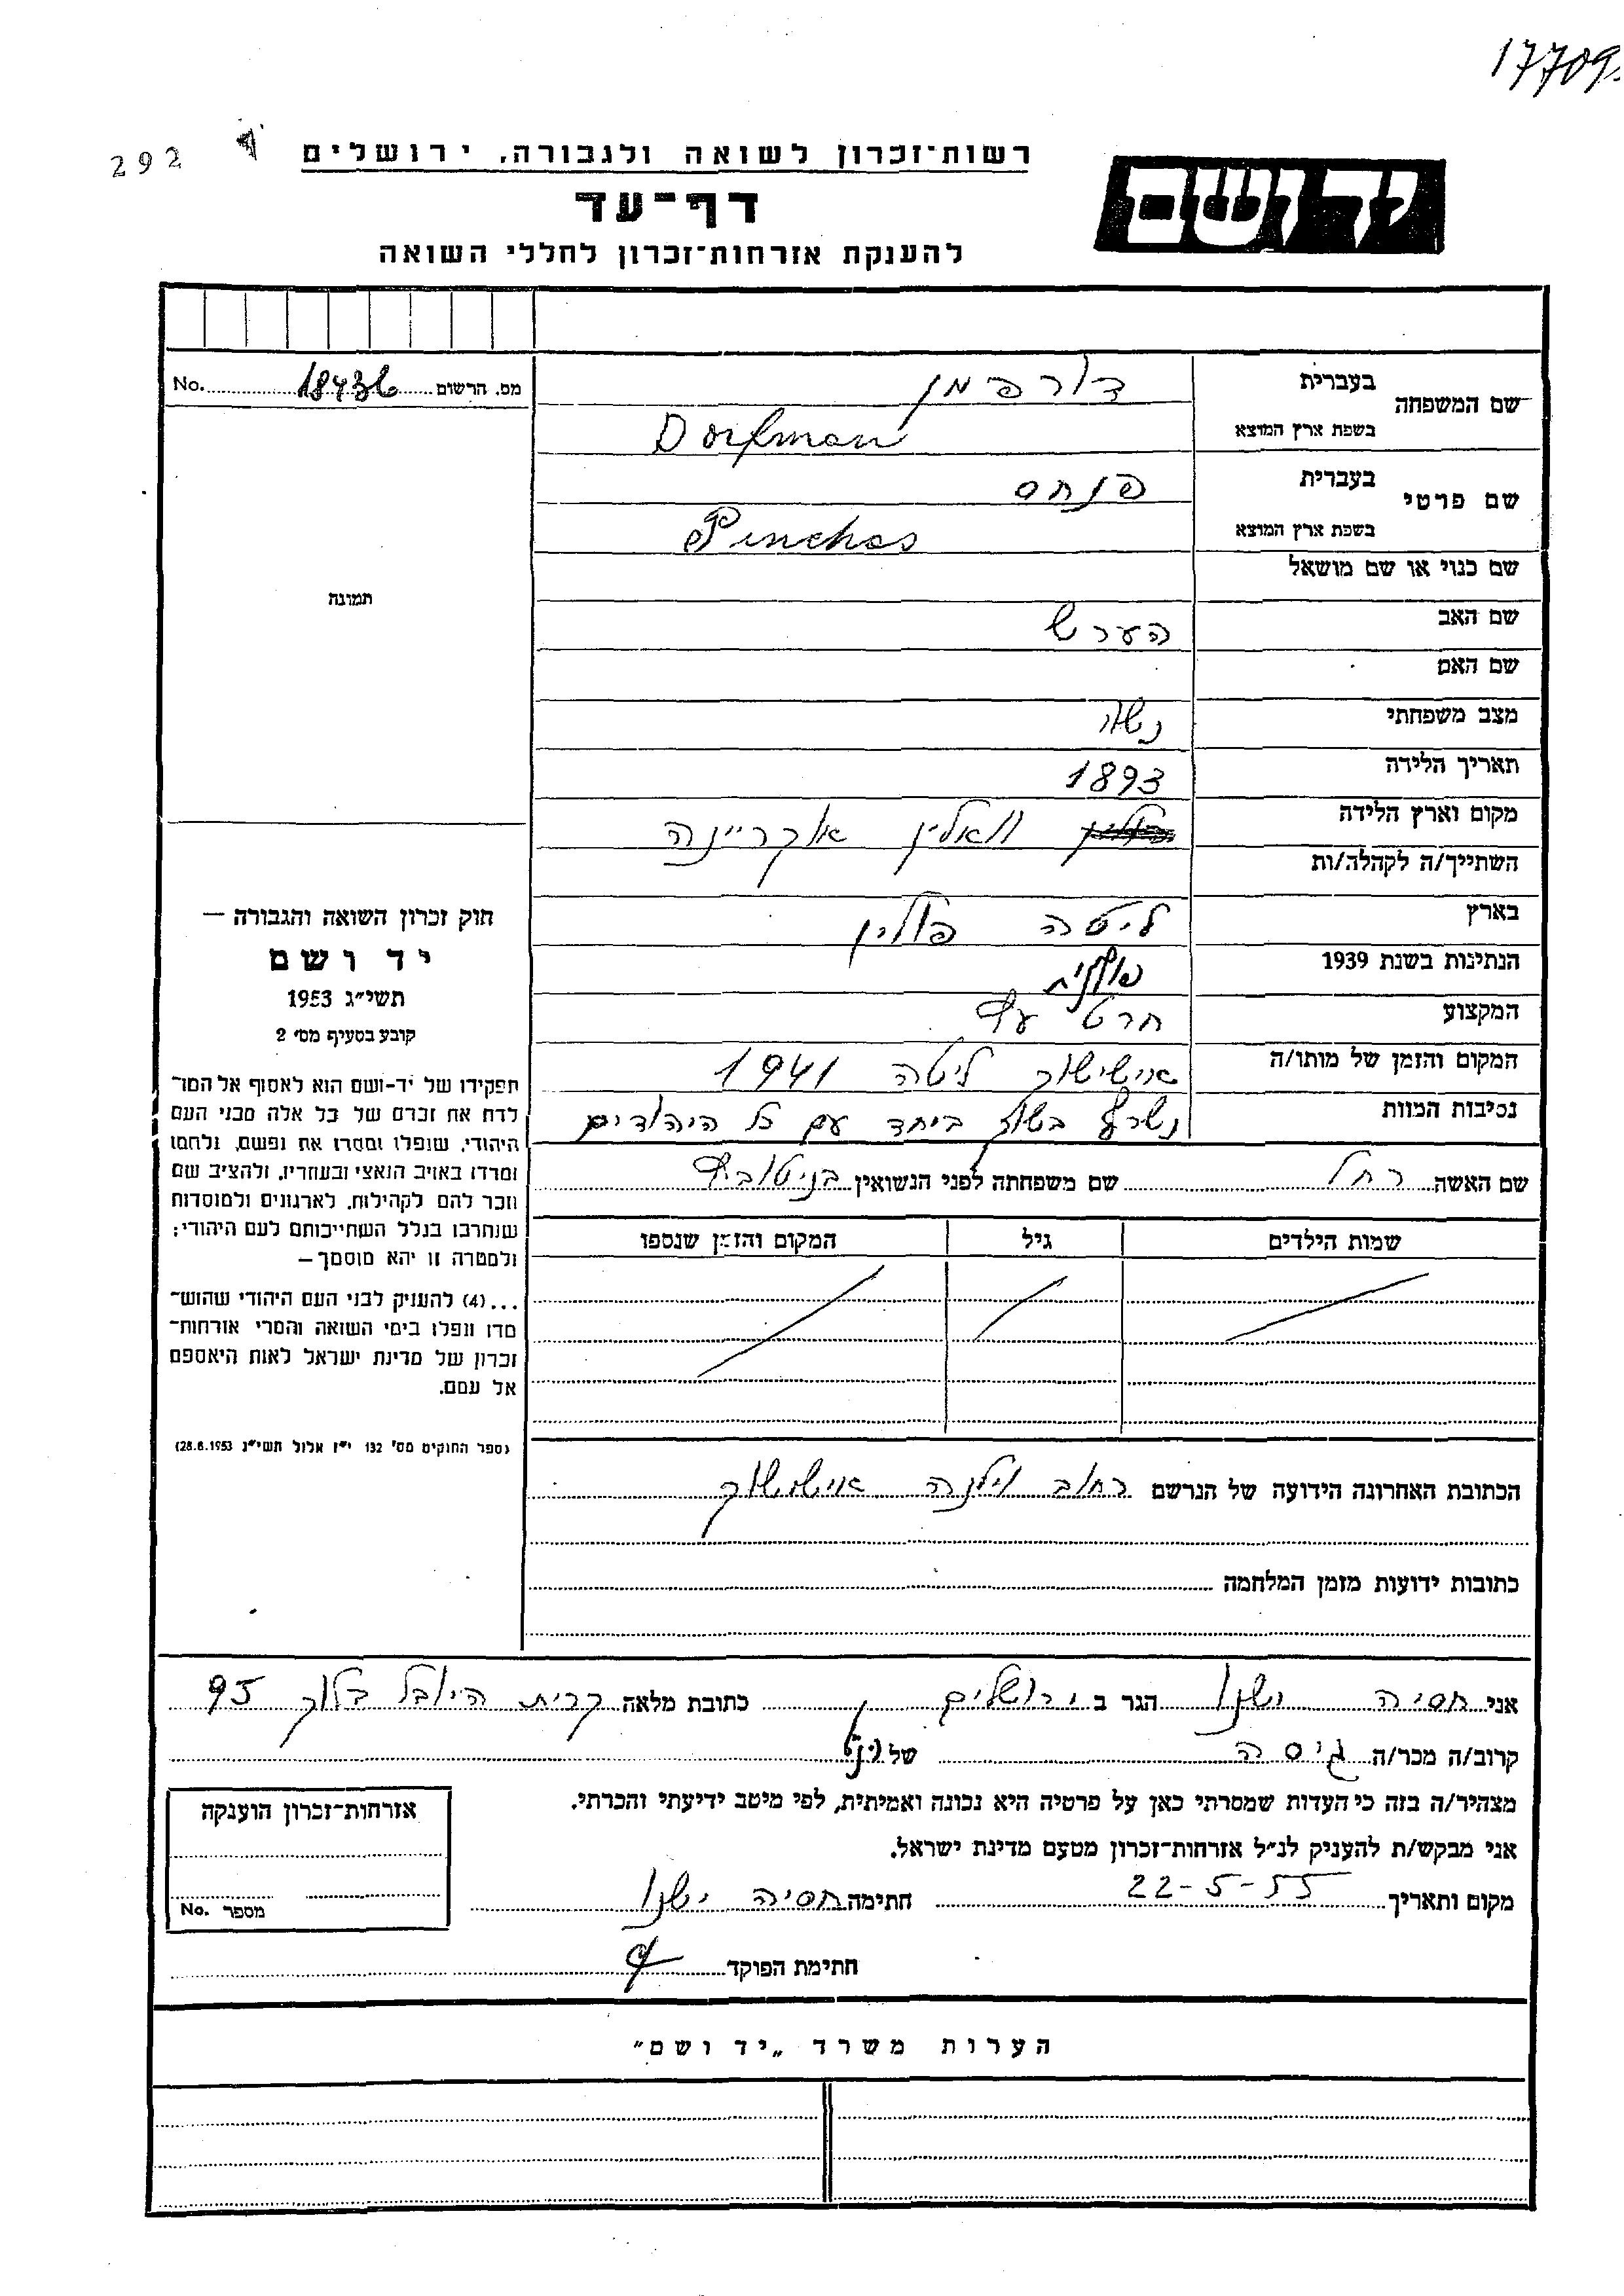 17709
292
רשות־זכרון לשואה ולגבורה, ירושלים
יד ושם
דף־עד
להענקת אזרחות־זכרון לחללי השואה
מס. הרשום 18436 No.
שם המשפחה
בעברית דורפמן
בשפת ארץ המוצא Dorfman
שם פרטי
בעברית פנחס
בשפת ארץ המוצא Pinchas
שם כנוי או שם מושאל
תמונה
שם האב הערש
שם האם
מצב משפחתי נשוי
תאריך הלידה 1893
מקום וארץ הלידה וואלין אוקריינה
השתייך/ה לקהלה/ות
בארץ ליטה פולין
הנתינות בשנת 1939 פולנית
המקצוע חרט עץ
המקום והזמן של מותו/ה אישישוק ליטה 1941
נסיבות המוות נשרף בשוק ביחד עם כל היהודים
שם האשה רחל שם משפחתה לפני הנשואין
שמות הילדים גיל המקום והזמן שנספו
הכתובת האחרונה הידועה של הנרשם רחוב וילנה אישישוק
כתובות ידועות מזמן המלחמה
חוק זכרון השואה והגבורה —
יד ושם
תשי״ג 1953
קובע בסעיף מס׳ 2
תפקידו של יד-ושם הוא לאסוף אל המו־
לדת את זכרם של כל אלה מבני העם
היהודי, שנפלו ומסרו את נפשם, נלחמו
ומרדו באויב הנאצי ובעוזריו, ולהציב שם
וזכר להם לקהילות, לארגונים ולמוסדות
שנחרבו בגלל השתייכותם לעם היהודי;
ולמטרה זו יהא מוסמך—
...(4) להעניק לבני העם היהודי שהוש־
מדו ונפלו בימי השואה והמרי אזרחות־
זכרון של מדינת ישראל לאות היאספם
אל עמם.
(ספר החוקים מס׳ 132 י״ז אלול תשי״ג 28.8.1953)
אני חסיה ישנו הגר ב ירושלים כתובת מלאה קרית היובל בלוק 95
קרוב/ה מכר/ה גיסה של
מצהיר/ה בזה כי העדות שמסרתי כאן על פרטיה היא נכונה ואמיתית, לפי מיטב ידיעתי והכרתי.
אני מבקש/ת להעניק לנ״ל אזרחות־זכרון מטעם מדינת ישראל.
מקום ותאריך 22-5-55 חתימה חסיה ישנו
חתימת הפוקד
אזרחות־זכרון הוענקה
מספר No.
הערות משרד „יד ושם״